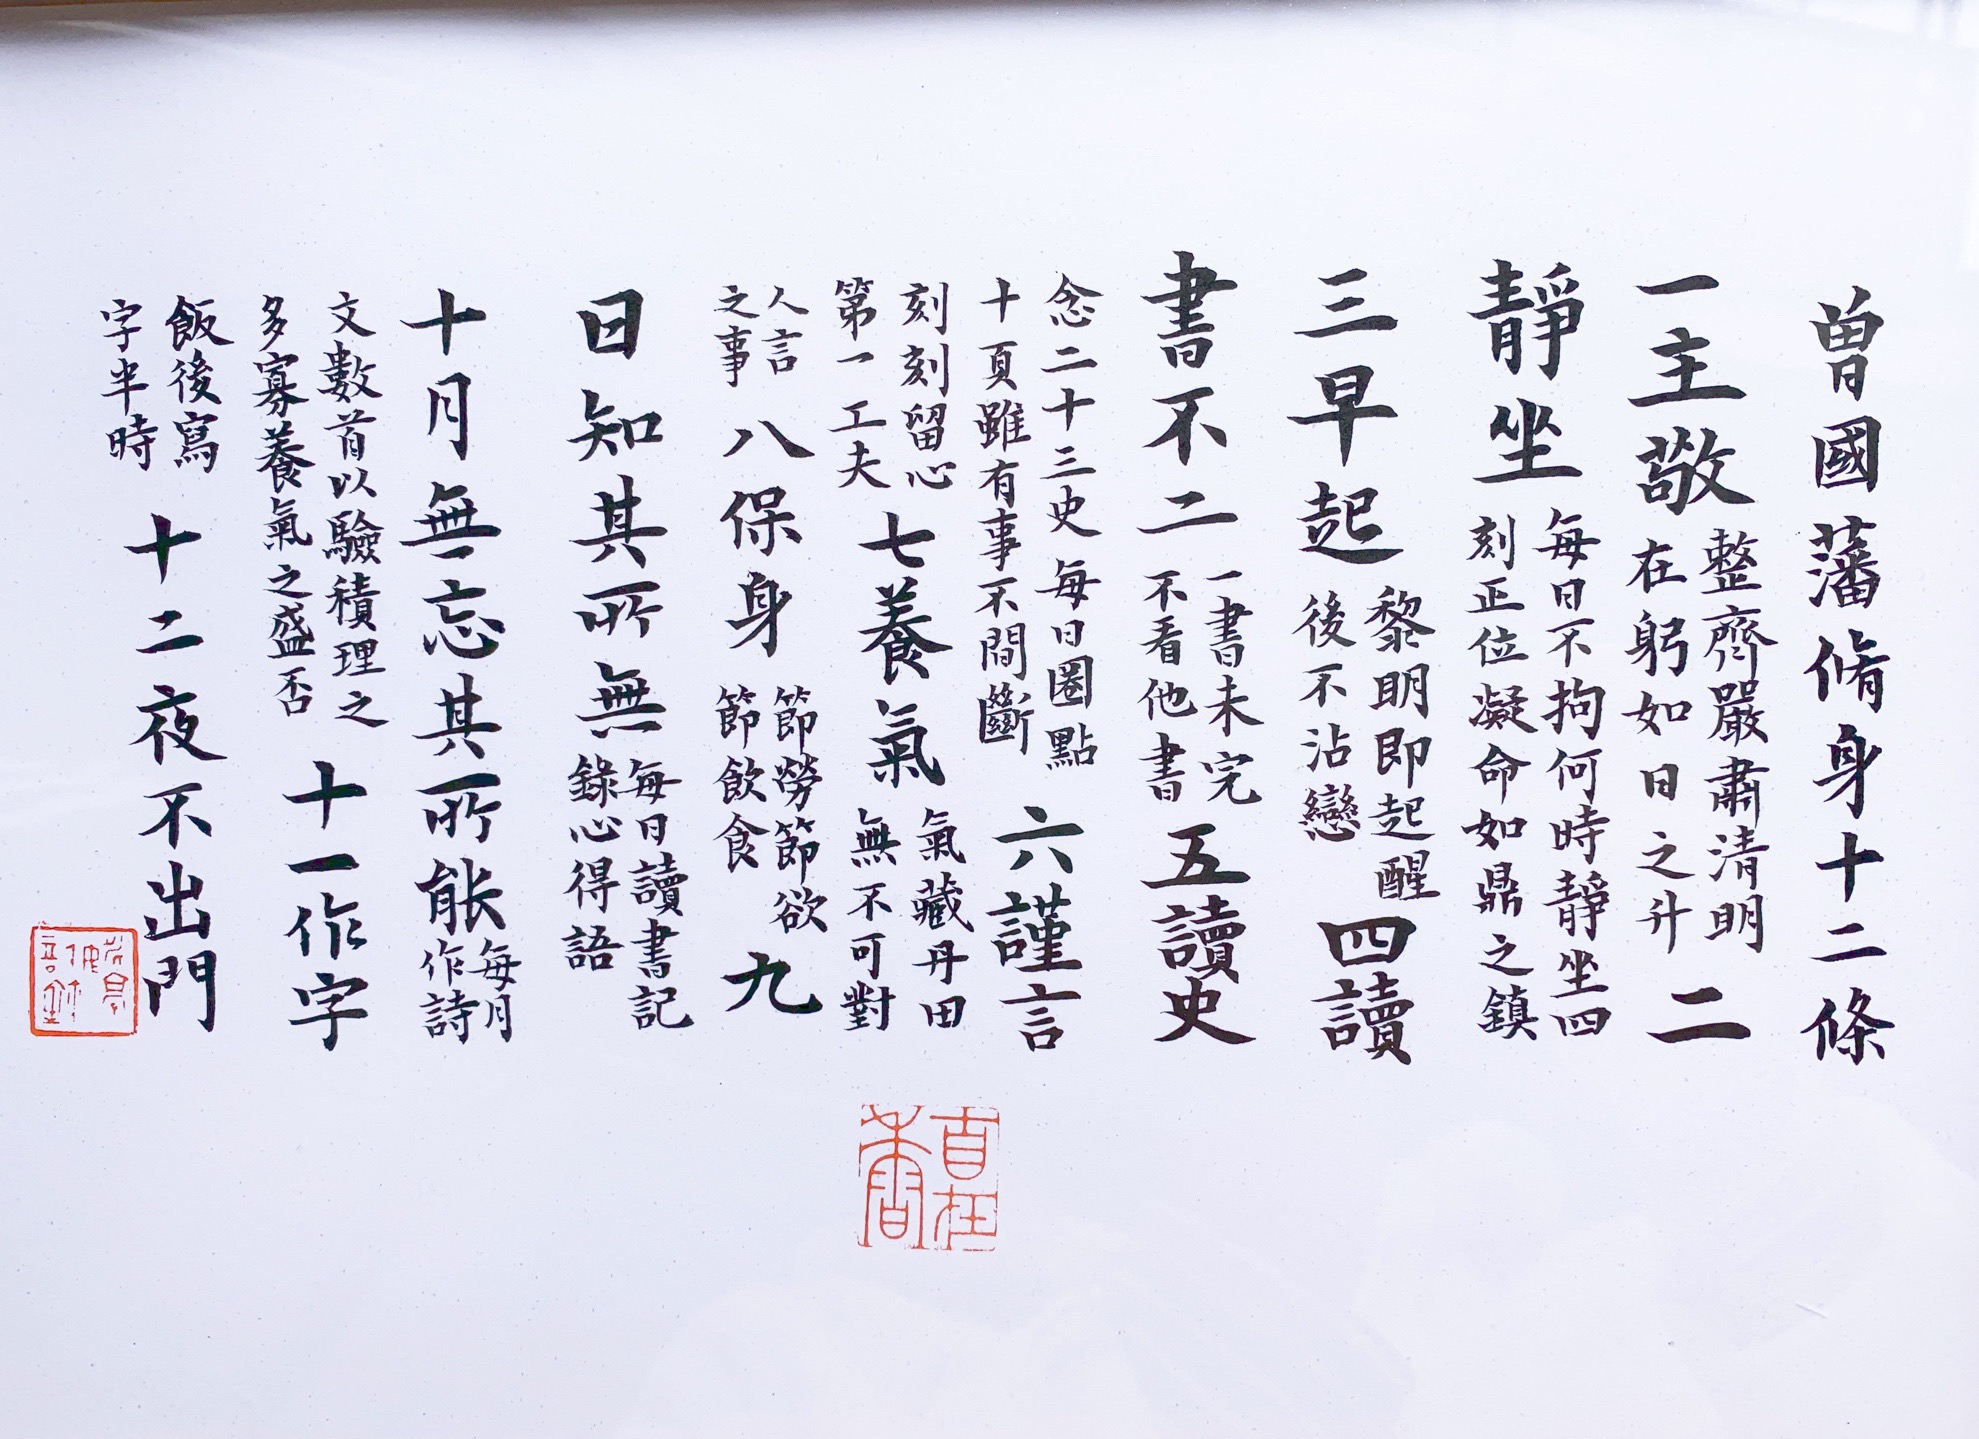 曾國藩脩身十二條
一主敬 整齊嚴肅清明在躬如日之升 二
靜坐 每日不拘何時靜坐四刻正位凝命如鼎之鎮
三早起 黎明即起醒後不沾戀 四讀
書不二 一書未完不看他書 五讀史
念二十三史每日圈點十頁雖有事不間斷 六謹言
刻刻留心第一工夫 七養氣 氣藏丹田無不可對
人言之事 八保身 節勞節欲節飲食 九
日知其所無 每日讀書記錄心得語
十月無忘其所能 每月作詩
文數首以驗積理之多寡養氣之盛否 十一作字
飯後寫字半時 十二夜不出門